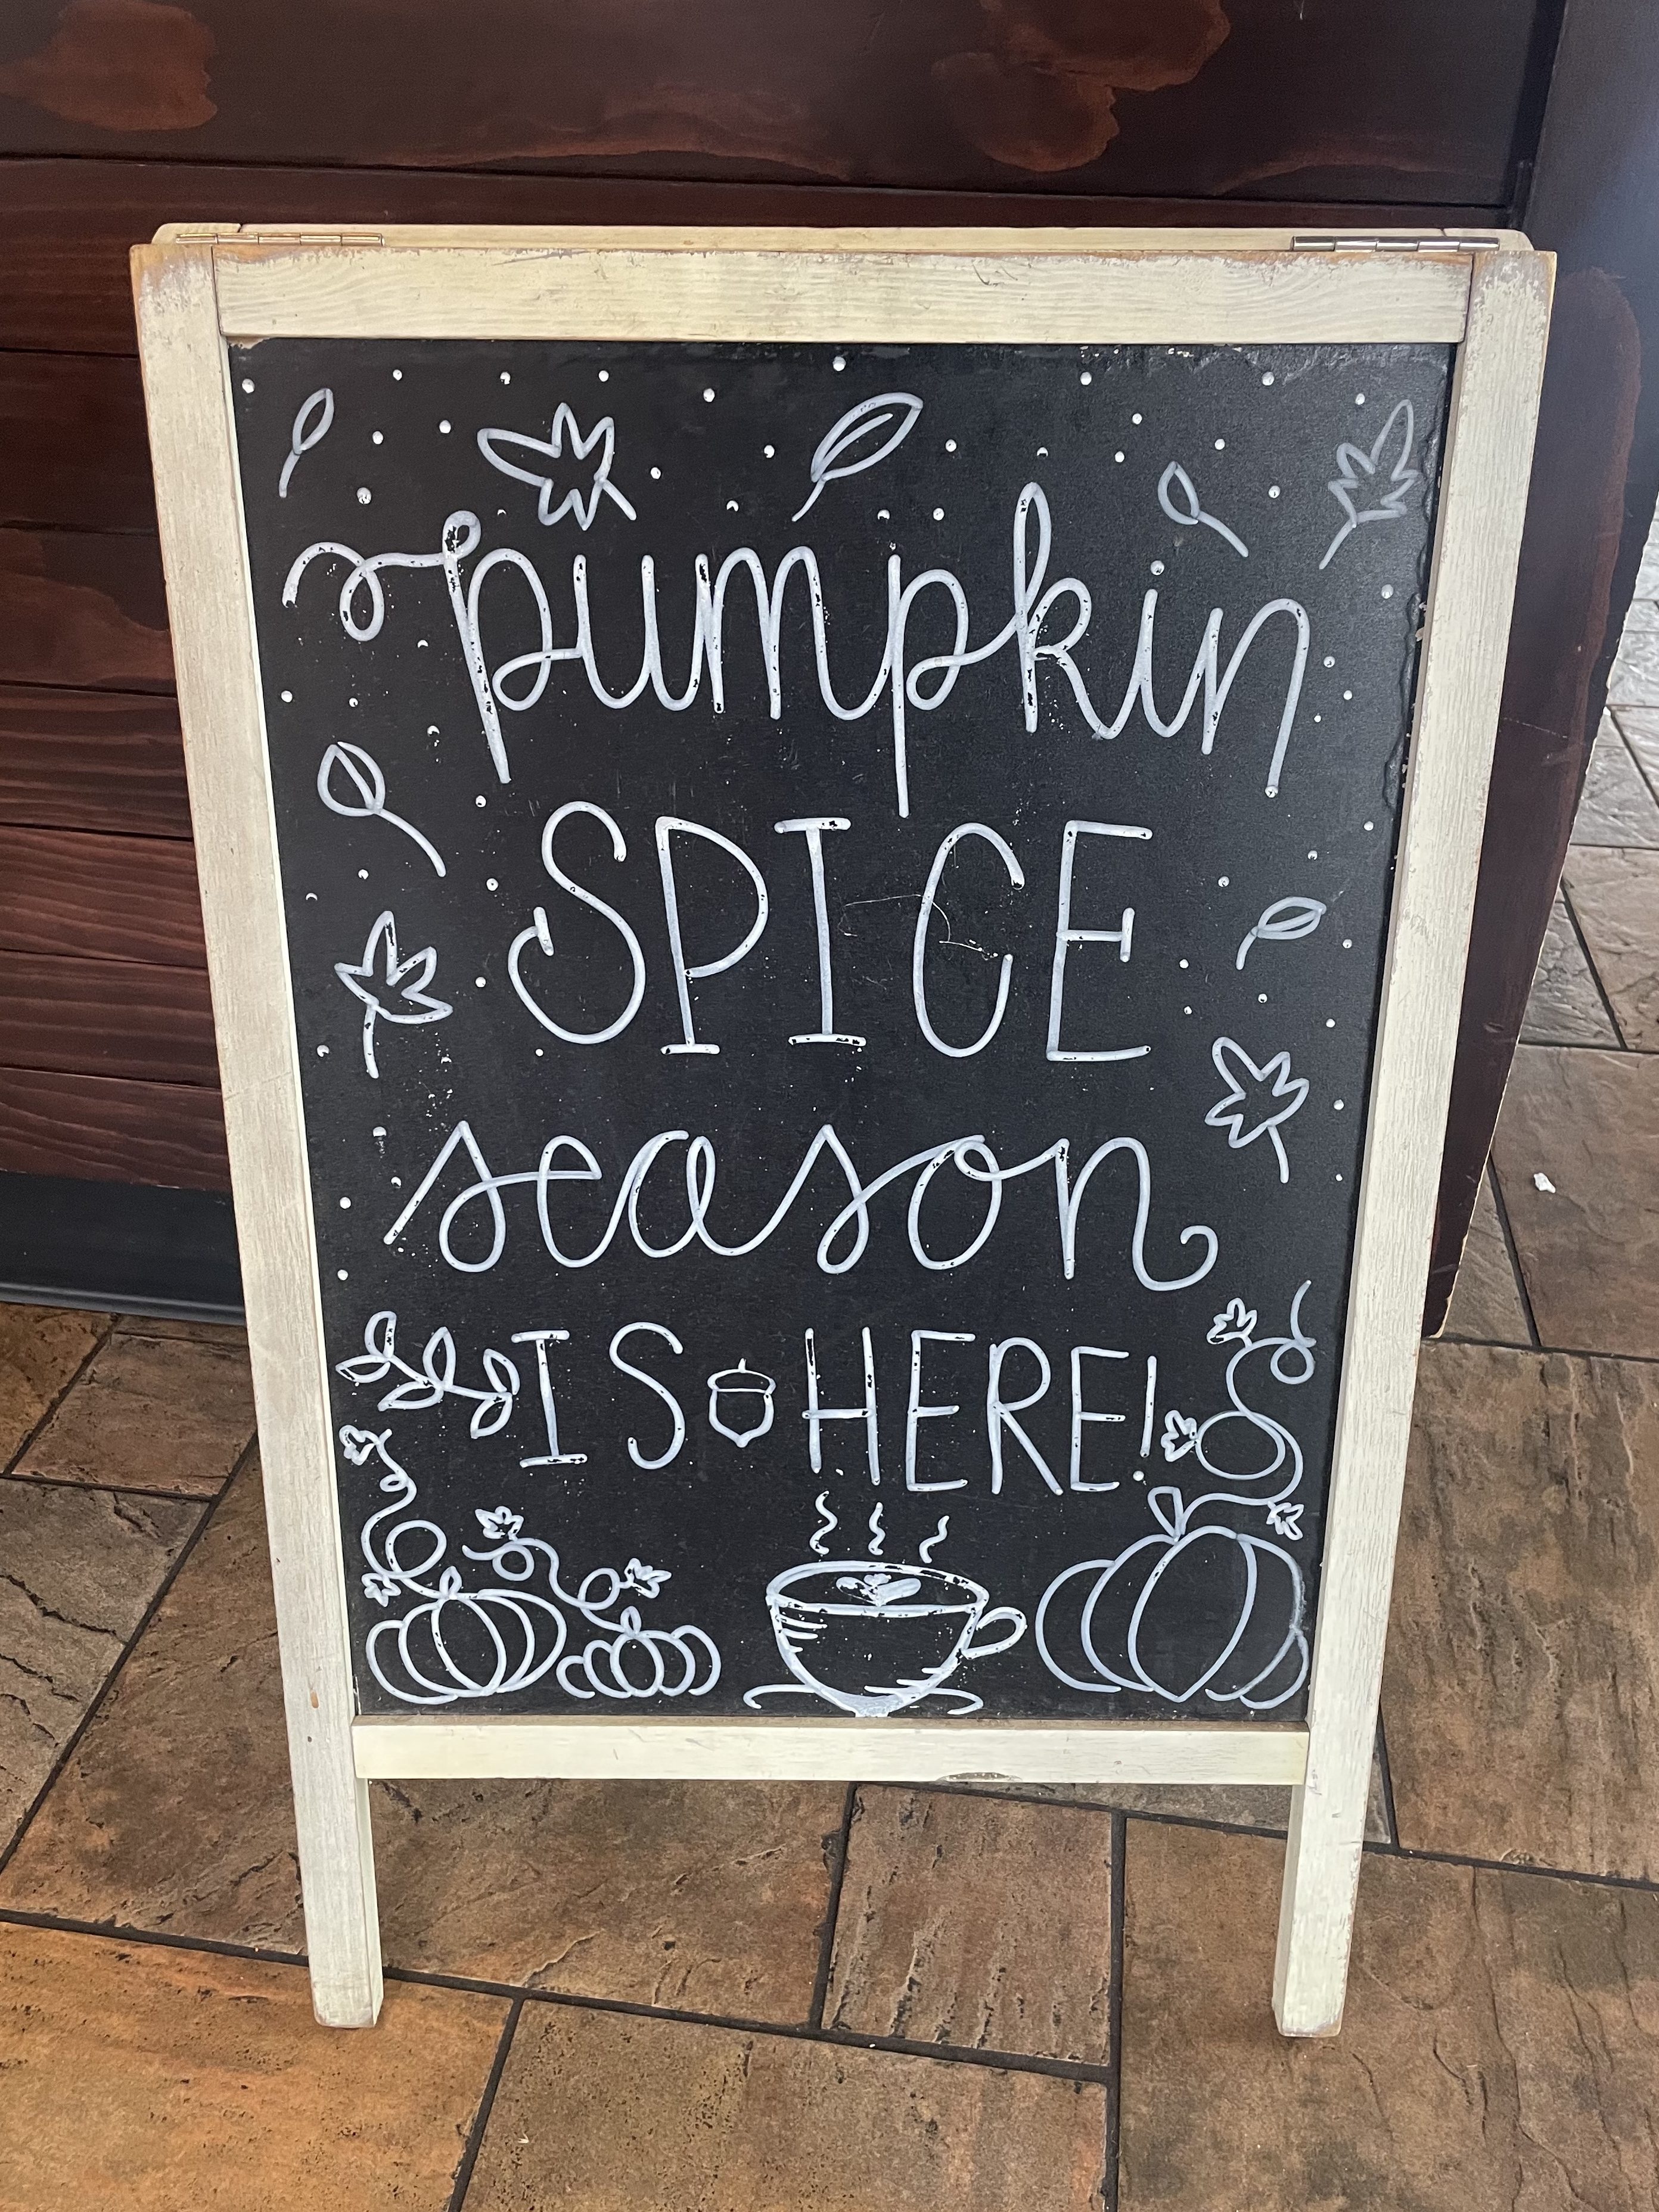 pumpkin
SPICE
season
IS HERE!